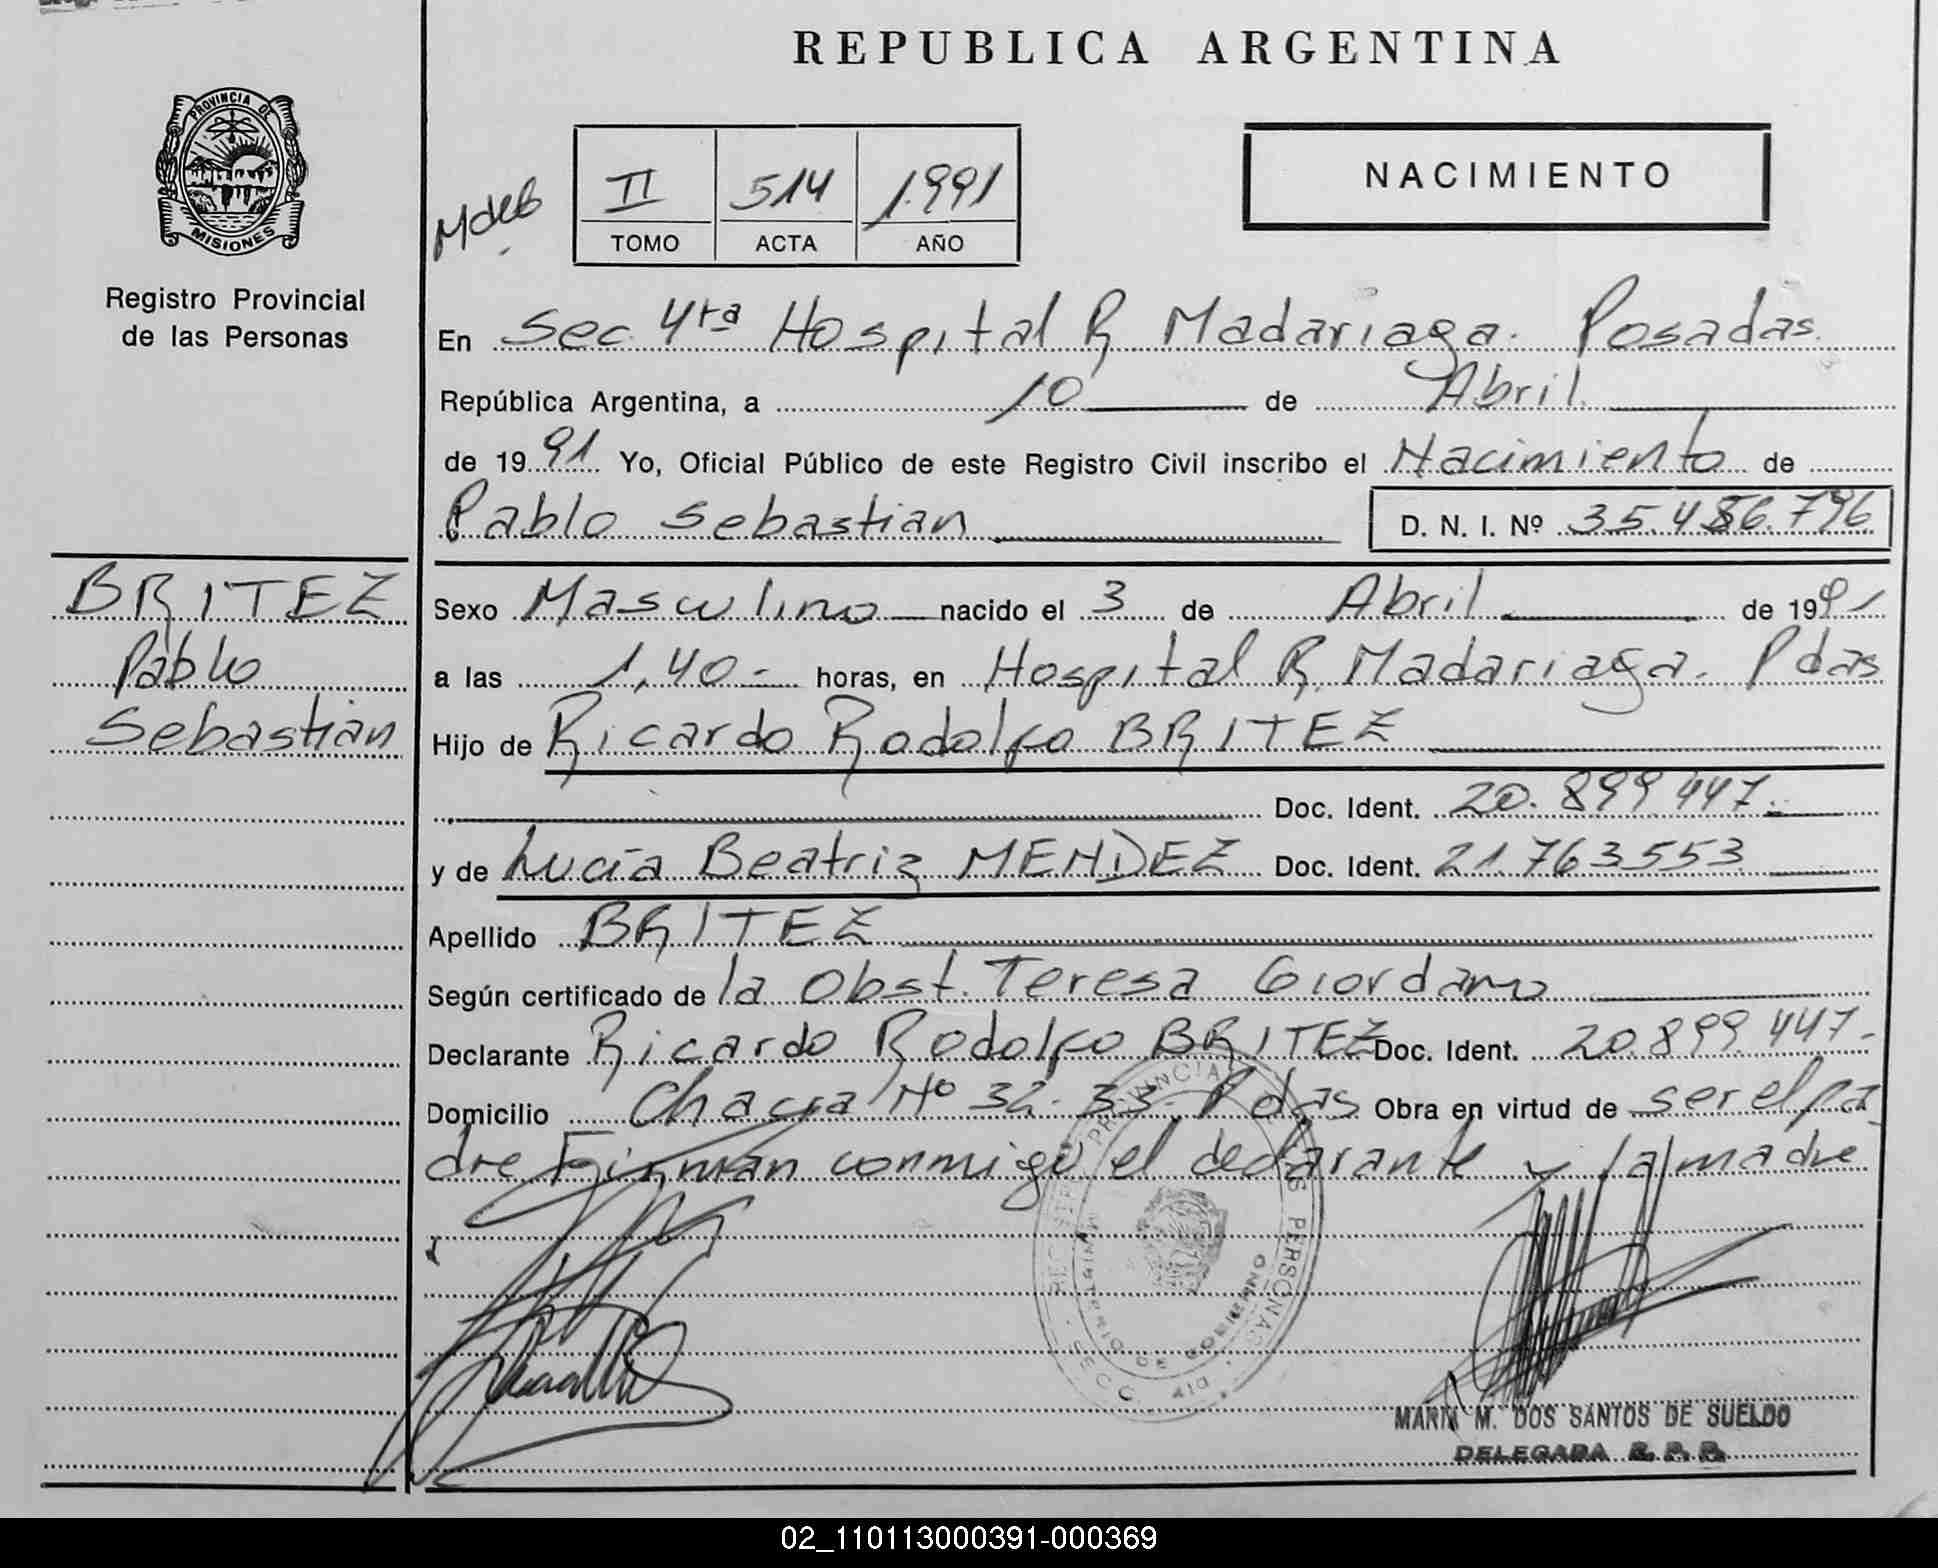 REPUBLICA ARGENTINA
PROVINCIA DE
MISIONES
Registro Provincial
de las Personas
II 514 1.991
TOMO ACTA AÑO
NACIMIENTO
En Sec. 4ta Hospital R Madariaga. Posadas.
República Argentina, a 10 de Abril
de 1991 Yo, Oficial Público de este Registro Civil inscribo el Nacimiento de
Pablo Sebastian D. N. I. Nº 35.486.796
BRITEZ
Pablo
Sebastian
Sexo Masculino nacido el 3 de Abril de 1991
a las 1,40.- horas, en Hospital R. Madariaga. Pdas
Hijo de Ricardo Rodolfo BRITEZ
Doc. Ident. 20.899.447.-
y de Lucía Beatriz MENDEZ Doc. Ident. 21.763.553
Apellido BRITEZ
Según certificado de la Obst. Teresa Giordano
Declarante Ricardo Rodolfo BRITEZ Doc. Ident. 20.899.447.-
Domicilio Chacra Nº 32-33. Pdas Obra en virtud de ser el pa
dre Firman conmigo el declarante y la madre
REGISTRO PROVINCIAL PERSONAS
MINISTERIO DE GOBIERNO
MARIA M. DOS SANTOS DE SUELDO
DELEGADA R. P. P.
02_110113000391-000369